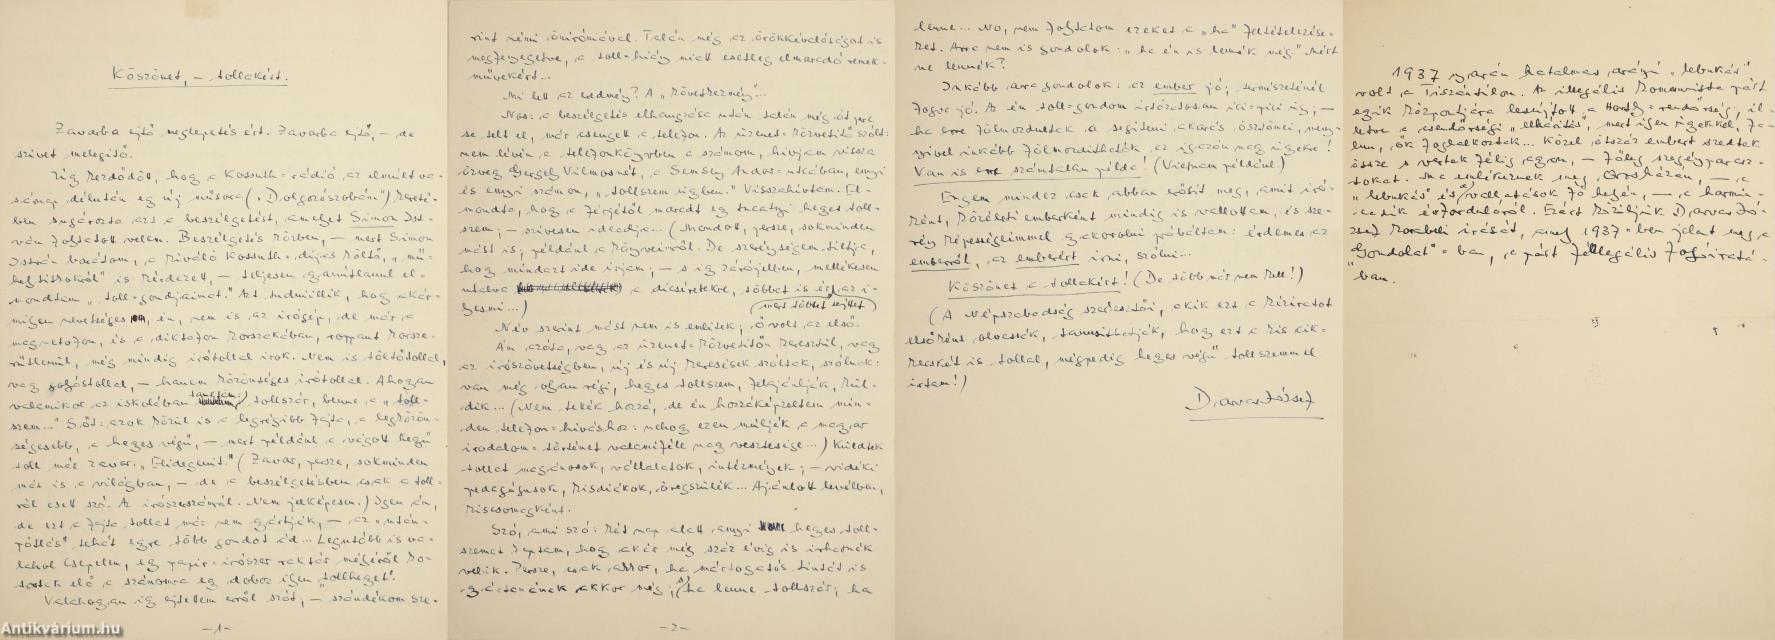 Köszönet, – tollakért.
Zavarba ejtő meglepetés ért. Zavarba ejtő, – de
szívet melegítő.
Úgy kezdődött, hogy a Kossuth-rádió az elmúlt va-
sárnap délután egy új műsora („Dolgozószobám”) kereté-
ben sugározta azt a beszélgetést, amelyet Simon Ist-
ván folytatott velem. Beszélgetés közben, – mert Simon
István barátom, a kiváló Kossuth-díjas költő, „mű-
helytitkokról” is kérdezett, – teljesen gyanútlanul el-
mondtam „toll-gondjaimat.” Azt tudniillik, hogy akár-
milyen nevetséges, én, nem is az írógép, de már a
magnetofon, és a diktafon korszakában, roppant korsze-
rűtlenül, még mindig írótollal írok. Nem is töltőtollal,
vagy golyóstollal, – hanem közönséges írótollal. Ahogyan
valamikor az iskolában tanultam: tollszár, benne a „toll-
szem...” Sőt: azok közül is a legrégibb fajta, a legközön-
ségesebb, a hegyes végű, – mert például a vágott hegyű
toll már zavar. „Elidegenít.” (Zavar, persze, sokminden
más is a világban, – de a beszélgetésben csak a toll-
ról esett szó. Az írószerszámról. Nem jelképesen.) Igen ám,
de ezt a fajta tollat már nem gyártják, – az „után-
pótlás” tehát egyre több gondot ád... Legutóbb is va-
lahol Csepelen, egy papír-írószer raktár mélyéről ko-
tortak elő a számomra egy doboz ilyen „tollhegyet”.
Valahogyan így ejtettem erről szót, – szándékom sze-
– 1 –
rint némi öniróniával. Talán még az örökkévalóságot is
megfenyegetve, a toll-hiány miatt esetleg elmaradó remek-
művekért...
Mi lett az eredmény? A „következmény”...
Nos: a beszélgetés elhangzása után talán még öt perc
se telt el, már csengett a telefon. Az üzenet-közvetítő szólt:
nem lévén a telefonkönyvben a számom, hívjam vissza
özvegy Gergely Vilmosnét, a Semsey Andor-utcában, ennyi
és ennyi számon, „tollszem ügyben.” Visszahívtam. El-
mondta, hogy a férjétől maradt egy tucatnyi hegyes toll-
szem; – szívesen ideadja... (Mondott, persze, sokminden
mást is; például a könyveimről. De szerénységem tiltja,
hogy mindazt ide írjam; – s így zárójelben, mellékesen
utalva a dicséretekre, többet is ért az i-
lyesmi...) (mert többet sejttet)
Név szerint mást nem is említek; ő volt az első.
Ám azóta, vagy az üzenet-közvetítőn keresztül, vagy
az írószövetségben, új és új keresések szóltak, szólnak:
van még olyan régi, hegyes tollszem, felajánlják, kül-
dik... (Nem tették hozzá, de én hozzáképzeltem min-
den telefon-híváshoz: nehogy ezen múljék a magyar
irodalom-történet valamiféle nagy vesztesége...) Küldtek
tollat magánosok, vállalatok, intézmények; – vidéki
pedagógusok, kisdiákok, öregszülék... Ajánlott levélben,
kiscsomagként.
Szó, ami szó: két nap alatt annyi hegyes toll-
szemet kaptam, hogy akár még száz évig is írhatnék
velük. Persze, csak akkor, ha mártogatós tintát is
gyártanának akkor még; s ha lenne tollszár; ha
– 2 –
lenne... No, nem folytatom ezeket a „ha” feltételezése-
ket. Arra nem is gondolok: „ha én is lennék még.” Miért
ne lennék?
Inkább arra gondolok: az ember jó; természeténél
fogva jó. Az én toll-gondom irtózatosan ici-pici ügy; –
ha erre fölmozdultak a segíteni akarás ösztönei, meny-
nyivel inkább fölmozdíthatók az igazán nagy ügyekre!
Van is erre számtalan példa! (Vietnam például)
Engem mindez csak abban erősít meg, amit író-
ként, közéleti emberként mindig is vallottam, és sze-
rény képességeimmel gyakorolni próbáltam: érdemes az
emberről, az emberért írni, szólni...
Köszönet a tollakért! (De több már nem kell!)
(A Népszabadság szerkesztői, akik ezt a kéziratot
elsőként olvassák, tanúsíthatják, hogy ezt a kis cik-
kecskét is tollal, mégpedig hegyes végű tollszemmel
írtam!)
Darvas József
1937 nyarán hatalmas arányú „lebukás”
volt a Tiszántúlon. Az illegális Kommunista Párt
egyik központjára lesújtott a Horthy-rendőrség, il-
letve a csendőrségi „elhárítás”, mert ilyen ügyekkel, fa-
lun, ők foglalkoztak... Közel ötszáz embert szedtek
össze s vertek félig agyon, – főleg szegénypara-
sztokat. Ma emlékeznek meg Orosházán, – a
„lebukás” és a vallatások fő helyén, – a harmin-
cadik évfordulóról. Ezért közöljük Darvas Jó-
zsef korabeli írását, amely 1937-ben jelent meg a
„Gondolat”-ban, a párt féllegális folyóiratá-
ban.
Antikvárium.hu